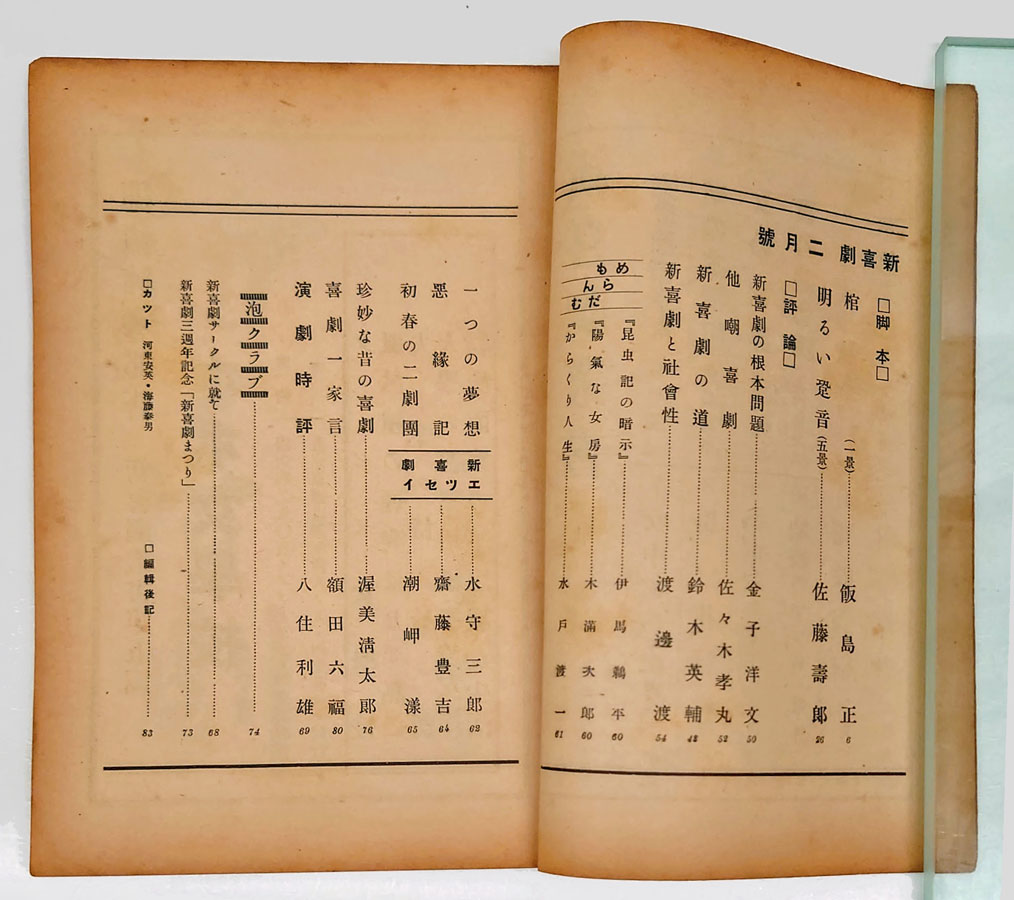 新喜劇 二月號
□脚本□
棺(一景)………飯島正 6
明るい跫音(五景)………佐藤壽郎 26
□評論□
新喜劇の根本問題………金子洋文 50
他嘲喜劇………佐々木孝丸 52
新喜劇の道………鈴木英輔 48
新喜劇と社會性………渡邊渡 54
めもらんだむ
『昆虫記の暗示』………伊馬鵜平 60
『陽氣な女房』………木滿次郎 60
『からくり人生』………水戸渡一 61
一つの夢想………水守三郎 62
惡緣記………齋藤豊吉 64
初春の二劇團………潮岬漾 65
新喜劇
エツセイ
珍妙な昔の喜劇………渥美淸太郎 76
喜劇一家言………額田六福 80
演劇時評………八住利雄 69
泡クラブ………74
新喜劇サークルに就て………68
新喜劇三週年記念「新喜劇まつり」………73
□カツト 河東安英・海藤泰男
□編輯後記………83